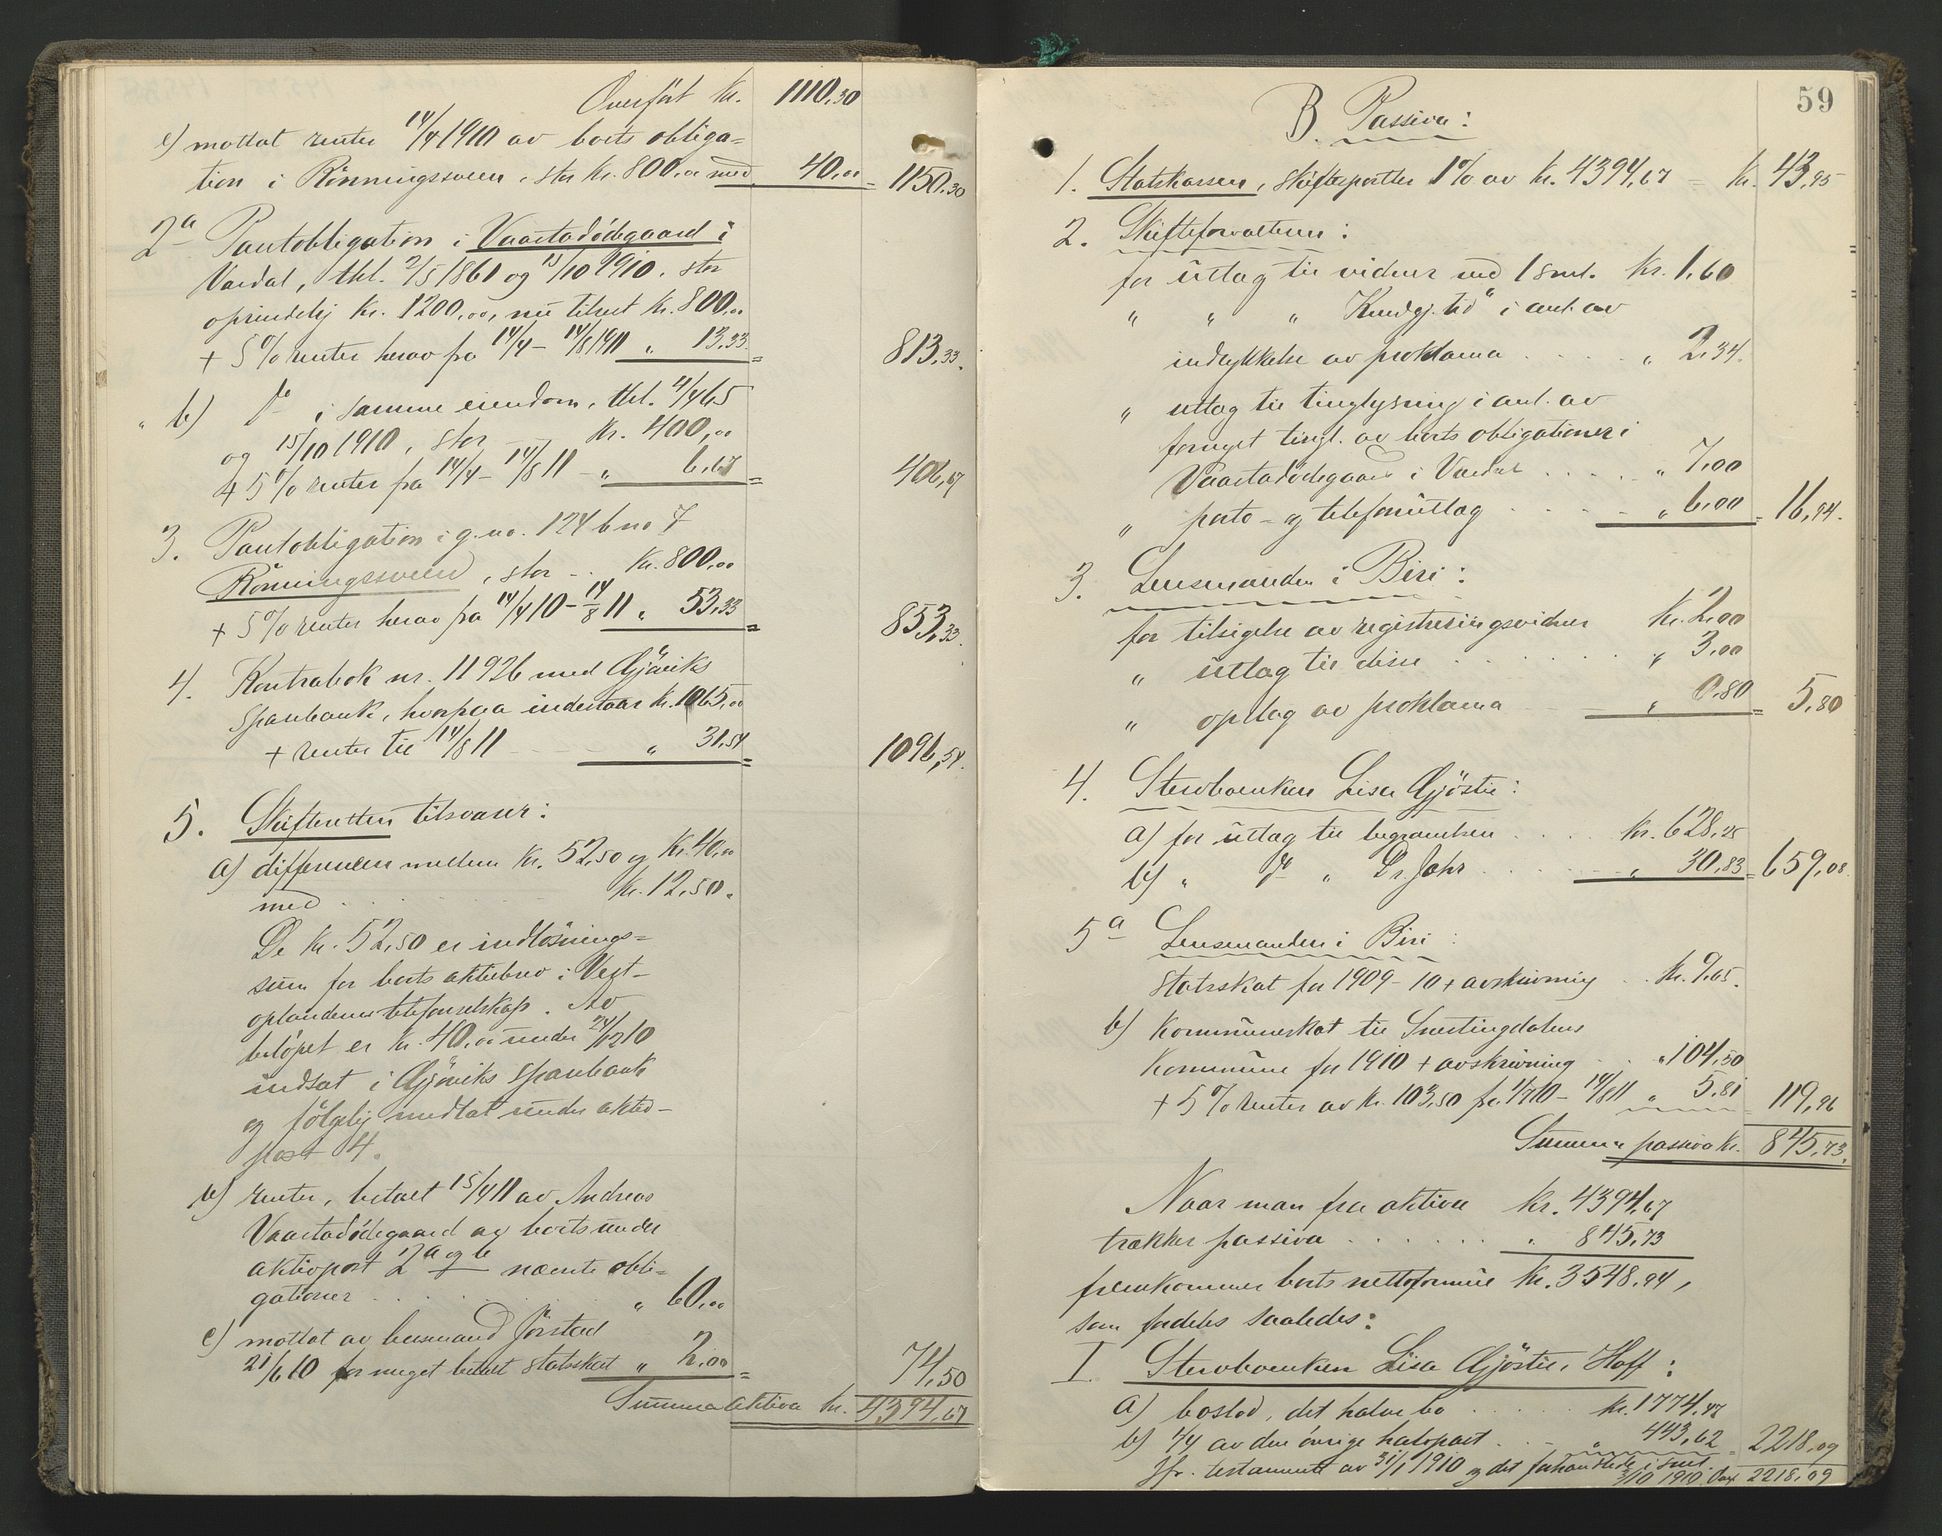 Overført Kr. 1110,30
c) mottat renter 14/4 1910 av boets obliga=
tion i Rönningsveen, stor kr. 800,00 med 40,00 = 1150,30
2a Pantobligation i Vaartadödegaard i
Vardal, thl. 2/5 1861 og 15/10 1910, stor
oprindelig kr. 1200,00, nu tilrest kr. 800,00
+ 5% renter herav fra 14/4 - 14/8 1911 „ 13,33 = 813,33.
„ b) do i samme eiendom, thl. 4/4 65
og 15/10 1910, stor kr. 400,00
+ 5% renter fra 14/4 - 14/8 11 - „ 6,67 = 406,67
3. Pantobligation i g.no. 124 b no 7
Rönningsveen, stor - kr. 800,00
+ 5% renter herav fra 14/4 10 - 14/8 11 „ 53,33 = 853,33.
4. Kontrabok nr. 11926 med Gjöviks
sparebank, hvorpaa indestaar kr. 1065,00
+ renter til 14/8 11 „ 31,54 = 1096,54.
5. Skifteretten tilsvarer:
a) differencen mellem kr. 52,50 og kr. 40,00
med kr. 12,50.
De kr. 52,50 er indlösnings=
sum for boets aktiebrev i Vest-
oplandenes telefonselskap. Av
belöpet er kr. 40,00 under 24/12 10
indsat i Gjöviks sparebank
og fölgelig medtat under aktiv-
post 4.
b) renter, betalt 15/4 11 av Andreas
Vaartadödegaard av boets under
aktivpost 2 a og b nævnte obli-
gationer „ 60,00
c) mottat av lensmand Jörstad
21/6 10 for meget betalt statsskat „ 2,00 = 74,50
Summa aktiva kr. 4394,67
59
B. Passiva:
1. Statskassen, skiftesportler 1% av kr. 4394,67 = kr. 43,95
2. Skifteforvalteren:
for utlag til vidner ved 1 smt. kr. 1,60
„ „ „ Kundgj. tid" i anl. av
indrykkelse av proklama „ 2,34.
„ utlag til tinglysning i anl. av
fornyet tingl. av boets obligationer i
Vaartadödegaard i Vardal „ 7,00
„ porto- og telefonutlag „ 6,00 = 16,94.
3. Lensmanden i Biri:
for tilsigelse av registreringsvidner kr. 2,00
„ utlag til disse „ 3,00
„ opslag av proklama „ 0,80 = 5,80
4. Stervboenken Lisa Gjöstie:
a) for utlag til begravelsen kr. 628,25
b) „ do „ Dr. Jahr „ 30,83 = 659,08.
5a Lensmanden i Biri:
statsskat for 1909-10 + avskrivning kr. 9,65.
b) kommuneskat til Snertingdalens
kommune for 1910 + avskrivning „ 104,50
+ 5% renter av kr. 103,50 fra 1/7 10 - 14/8 11 „ 5,81 119,96
Summa passiva kr. 845,73.
Naar man fra aktiva kr. 4394,67
trækker passiva „ 845,73
fremkommer boets nettoformue kr. 3548,94,
som fordeles saaledes:
I. Stervboenken Lisa Gjöstie, Hoff:
a) boslod, det halve bo kr. 1774,47
b) 1/4 av den övrige halvpart „ 443,62 = 2218,09
Jfr. testamente av 31/1 1910 og det forhandlede i smt.
3/10 1910. 2218,09